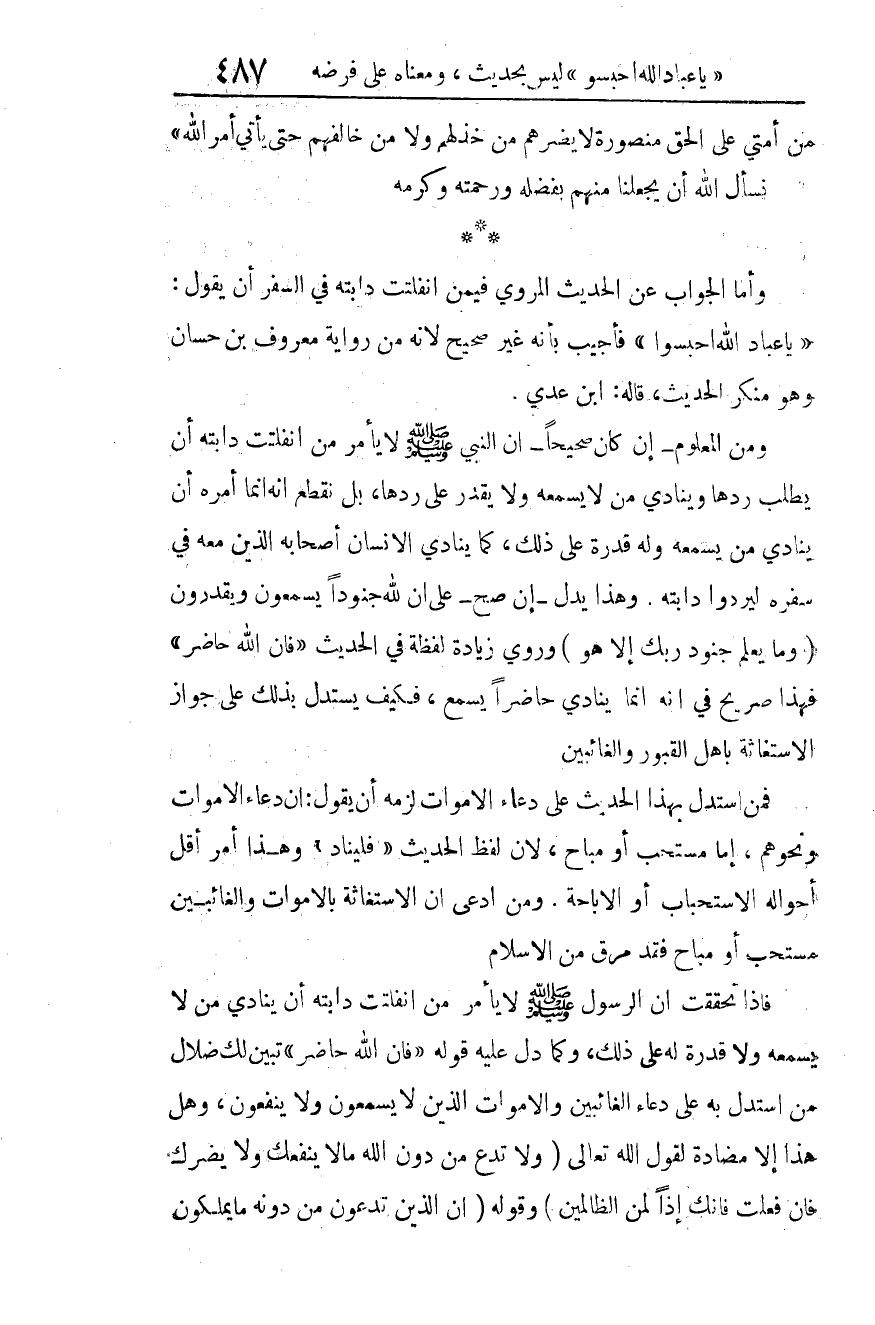 « ياعباد الله احبسو » ليس بحديث ، ومعناه على فرضه ٤٨٧
من أمتي على الحق منصورة لايضرهم من خذلهم ولا من خالفهم حتى يأتي أمر الله»
نسأل الله أن يجعلنا منهم بفضله ورحمته وكرمه
***
وأما الجواب عن الحديث المروي فيمن انفلتت دابته في السفر أن يقول :
« ياعباد الله احبسوا » فأجيب بأنه غير صحيح لانه من رواية معروف بن حسان
وهو منكر الحديث، قاله: ابن عدي .
ومن المعلوم ـ إن كان صحيحاً ـ ان النبي ﷺ لايأمر من انفلتت دابته أن
يطلب ردها وينادي من لايسمعه ولا يقدر على ردها، بل نقطع انه انما أمره أن
ينادي من يسمعه وله قدرة على ذلك ، كما ينادي الانسان أصحابه الذين معه في
سفره ليردوا دابته . وهذا يدل ـ إن صح ـ على ان لله جنوداً يسمعون ويقدرون
( وما يعلم جنود ربك إلا هو ) وروي زيادة لفظة في الحديث «فان الله حاضر»
فهذا صريح في انه انما ينادي حاضراً يسمع ، فكيف يستدل بذلك على جواز
الاستغاثة باهل القبور والغائبين
فمن استدل بهذا الحديث على دعاء الاموات لزمه أن يقول: ان دعاء الاموات
ونحوهم ، إما مستحب أو مباح ، لان لفظ الحديث « فليناد » وهـذا أمر أقل
أحواله الاستحباب أو الاباحة . ومن ادعى ان الاستغاثة بالاموات والغائبـين
مستحب أو مباح فقد مرق من الاسلام
فاذا تحققت ان الرسول ﷺ لايأمر من انفلتت دابته أن ينادي من لا
يسمعه ولا قدرة له على ذلك، وكما دل عليه قوله «فان الله حاضر» تبين لك ضلال
من استدل به على دعاء الغائبين والاموات الذين لايسمعون ولا ينفعون ، وهل
هذا إلا مضادة لقول الله تعالى ( ولا تدع من دون الله مالا ينفعك ولا يضرك
فان فعلت فانك إذاً لمن الظالمين ) وقوله ( ان الذين تدعون من دونه مايملـكون